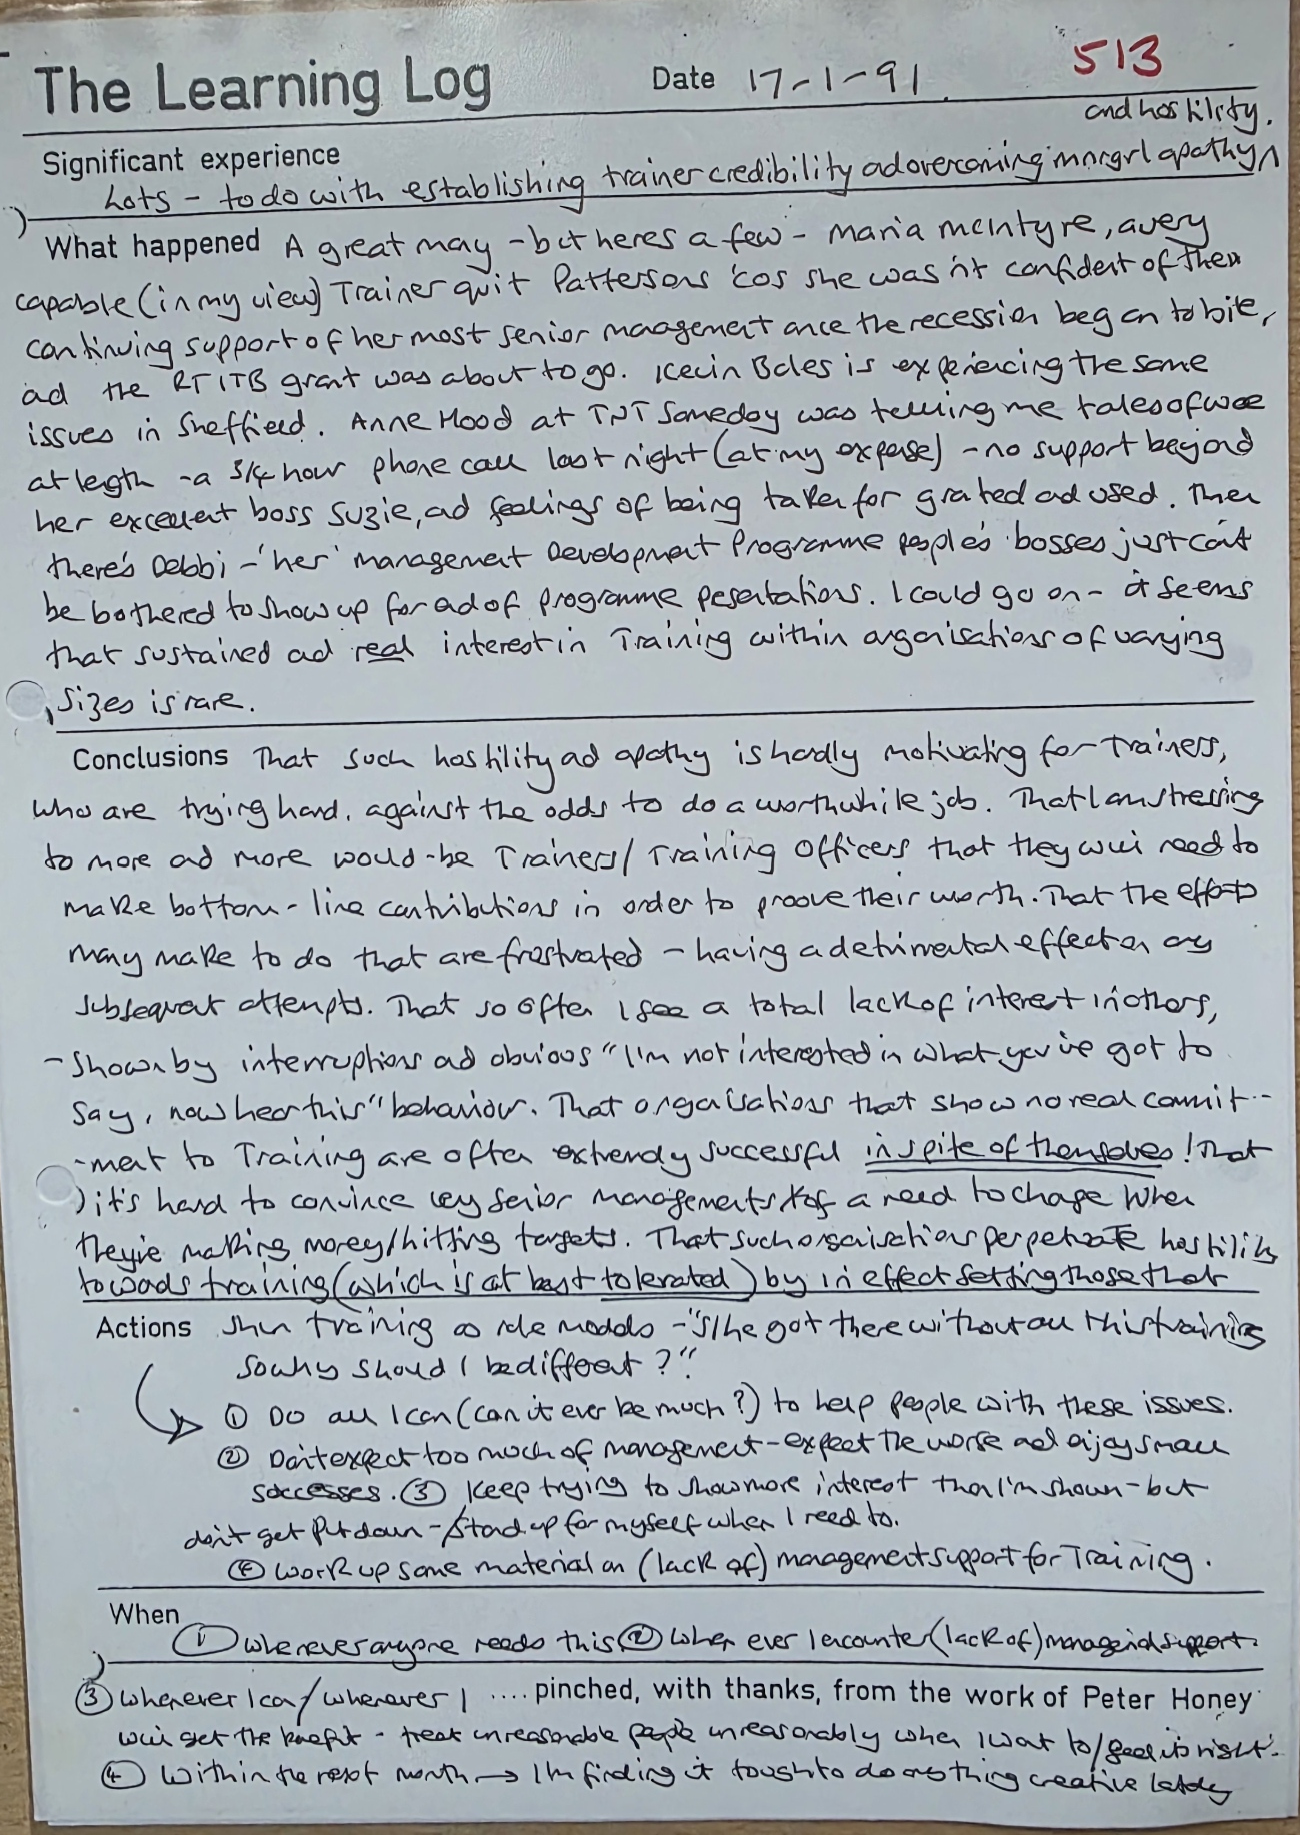 513
The Learning Log Date 17-1-91
and hostility.
Significant experience
Lots - to do with establishing trainer credibility ad overcoming mnrgrl apathy ^
What happened A great may - but heres a few - Maria McIntyre, a very
capable (in my view) Trainer quit Pattersons 'cos she wasn't confident of their
continuing support of her most senior management once the recession began to bite,
ad the RTITB grant was about to go. Kevin Boles is experiencing the same
issues in Sheffield. Anne Hood at TNT Sameday was telling me tales of woe
at length - a 3/4 hour phone call last night (at my expense) - no support beyond
her excellent boss Suzie, ad feelings of being taken for granted ad used. Then
there's Debbi - 'her' management Development Programme people's bosses just can't
be bothered to show up for ad of programme pesentations. I could go on - it seems
that sustained ad real interest in Training within organisations of varying
sizes is rare.
Conclusions That such hostility ad apathy is hardly motivating for trainers,
who are trying hard, against the odds to do a worthwhile job. That I am stressing
to more ad more would-be Trainers/Training Officers that they will need to
make bottom-line contributions in order to proove their worth. That the efforts
may make to do that are frustrated - having a detrimental effect on any
subsequent attempts. That so often I see a total lack of interest in others,
- shown by interruptions ad obvious "I'm not interested in what you've got to
say, now hear this" behaviour. That organisations that show no real commit-
-ment to Training are often extremely successful in spite of themselves! That
it's hard to convince key senior managements of a need to change when
they're making money/hitting targets. That such organisations perpetuate hostility
towards training (which is at best tolerated) by in effect setting those that
Actions shun training as role models - "s/he got there without all this training
so why should I be different?"
① Do all I can (can it ever be much?) to help people with these issues.
② Don't expect too much of management - expect the worse ad enjoy small
successes. ③ Keep trying to show more interest than I'm shown - but
don't get put down - / stand up for myself when I need to.
④ Work up some material on (lack of) management support for Training.
When
① whenever anyone needs this ② When ever I encounter (lack of) managerial support.
③ whenever I can/whenever I .... pinched, with thanks, from the work of Peter Honey
will get the benefit - treat unreasonable people unreasonably when I want to/feel its right.
④ Within the next month → I'm finding it tough to do anything creative lately